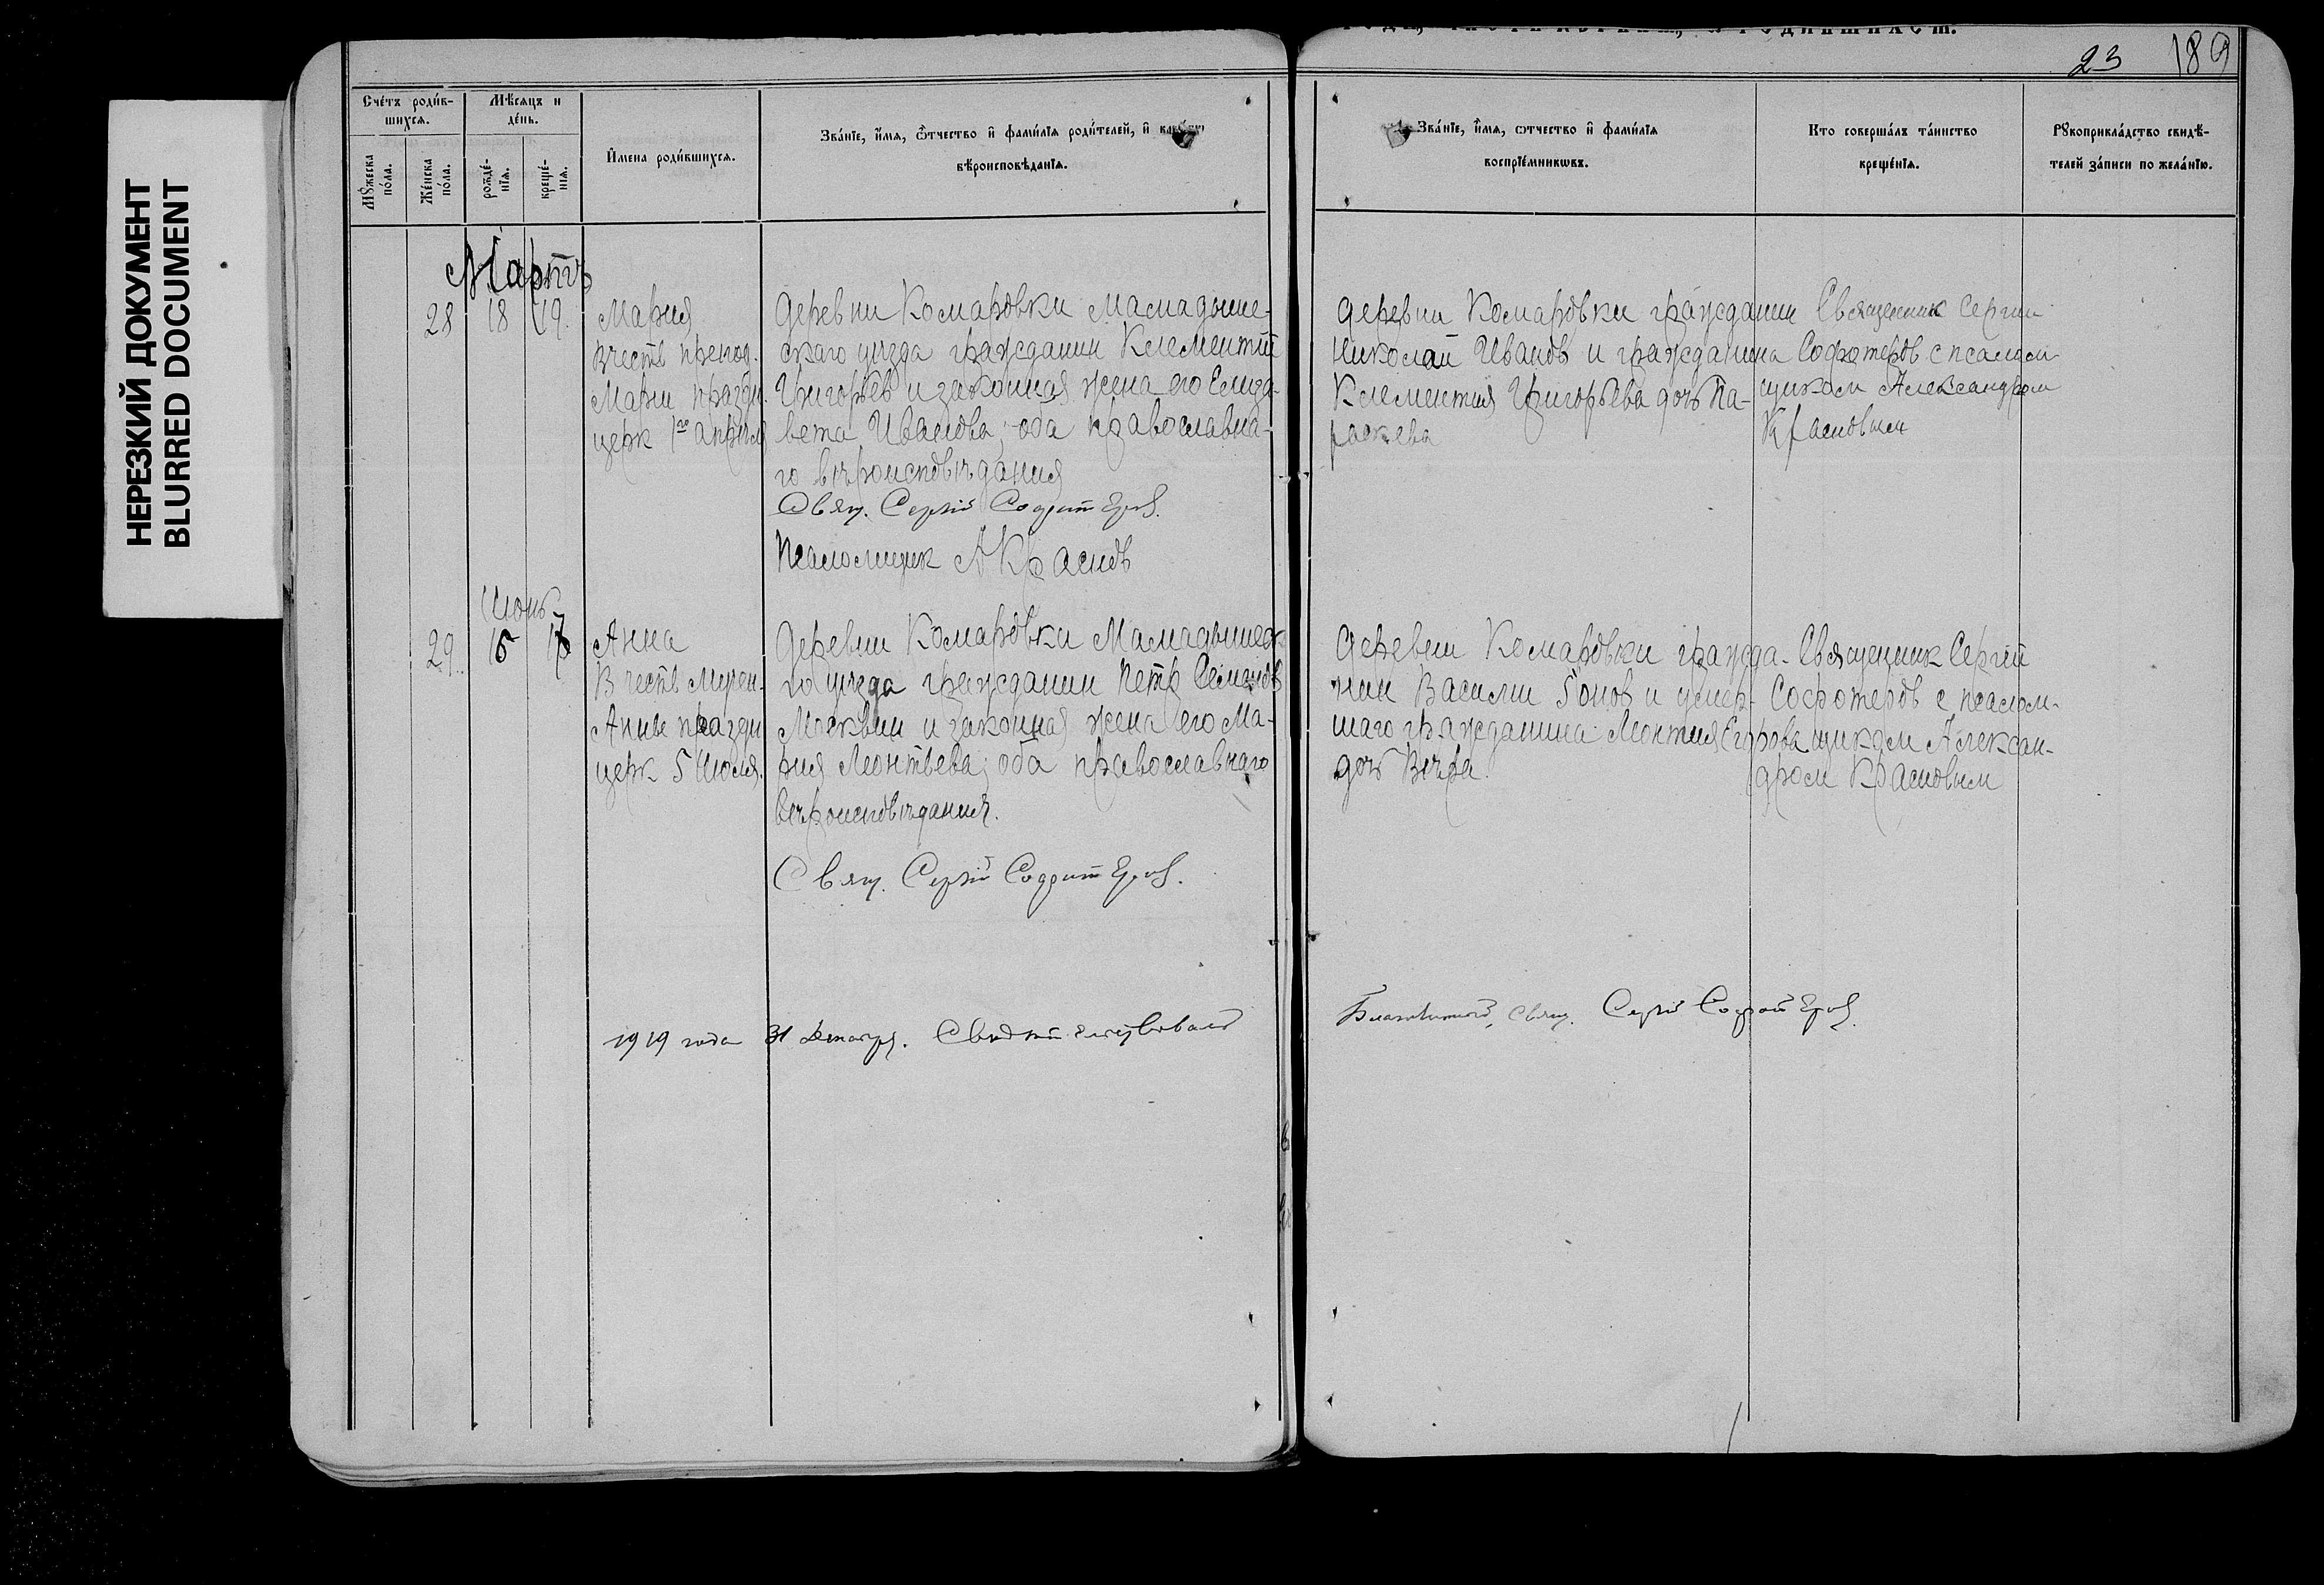 НЕРЕЗКИЙ ДОКУМЕНТ
BLURRED DOCUMENT
23 189
Счетъ родив-
шихся.
Мужеска
пола.
Женска
пола.
Мѣсяцъ и
день.
рожде-
нія.
креще-
нія.
Имена родившихся.
Званіе, имя, отчество и фамилія родителей, и
вѣроисповѣданія.
Званіе, имя, отчество и фамилія
воспріемниковъ.
Кто совершалъ таинство
крещенія.
Рукоприкладство свидѣ-
телей записи по желанію.
Мартъ
28 18 19.
Мария
В честь препод.
Марии праздн.
церк 1го апреля
Деревни Комаровки Мамадыше-
скаго уѣзда гражданин Клементий
Григорьев и законная жена его Елиза-
вета Иванова; оба православна-
го вѣроисповѣдания
Свящ. Сергій Софотеров.
Псаломщик А Краснов
деревни Комаровки гражданин
Николай Иванов и гражданина
Клементия Григорьева дочь Па-
раскева
Священник Сергий
Софотеров с псалом-
щиком Александром
Красновым
Июнь
29. 15 17
Анна
В честь мучен.
Анны праздн
церк 5 Июля.
Деревни Комаровки Мамадышск-
го уѣзда гражданин Петр Семенов
Москвин и законная жена его Ма-
рия Леонтьева; оба православнаго
вѣроисповѣдания.
Свящ. Сергій Софотеров.
Деревни Комаровки гражда-
нин Василий и умер-
шаго гражданина Леонтия Егорова
дочь Вѣра.
Священник Сергий
Софотеров с псалом-
щиком Алексан-
дром Красновым
1919 года 31 декабря. Свидѣтельствовалъ
Благочинный, свящ. Сергій Софотеров.